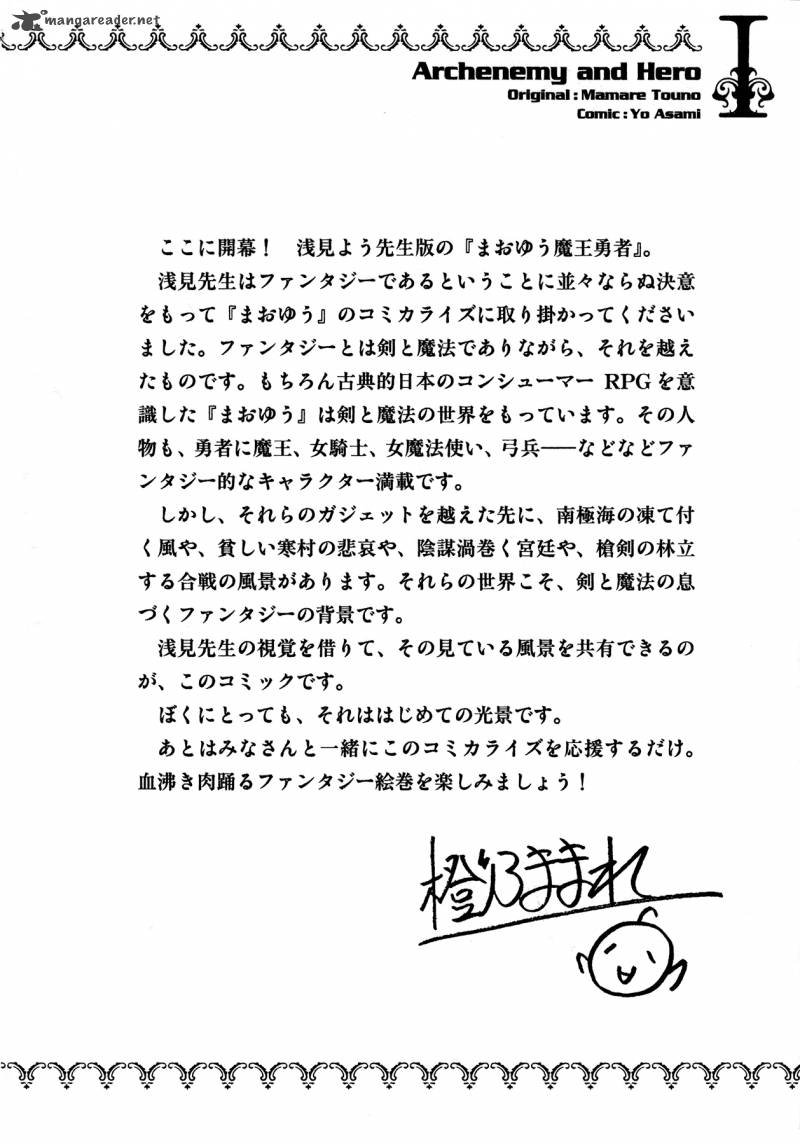 mangareader.net
I
Archenemy and Hero
Original : Mamare Touno
Comic : Yo Asami
ここに開幕！　浅見よう先生版の『まおゆう魔王勇者』。
浅見先生はファンタジーであるということに並々ならぬ決意
をもって『まおゆう』のコミカライズに取り掛かってください
ました。ファンタジーとは剣と魔法でありながら、それを越え
たものです。もちろん古典的日本のコンシューマー RPG を意
識した『まおゆう』は剣と魔法の世界をもっています。その人
物も、勇者に魔王、女騎士、女魔法使い、弓兵――などなどファ
ンタジー的なキャラクター満載です。
しかし、それらのガジェットを越えた先に、南極海の凍て付
く風や、貧しい寒村の悲哀や、陰謀渦巻く宮廷や、槍剣の林立
する合戦の風景があります。それらの世界こそ、剣と魔法の息
づくファンタジーの背景です。
浅見先生の視覚を借りて、その見ている風景を共有できるの
が、このコミックです。
ぼくにとっても、それははじめての光景です。
あとはみなさんと一緒にこのコミカライズを応援するだけ。
血沸き肉踊るファンタジー絵巻を楽しみましょう！
橙乃ままれ